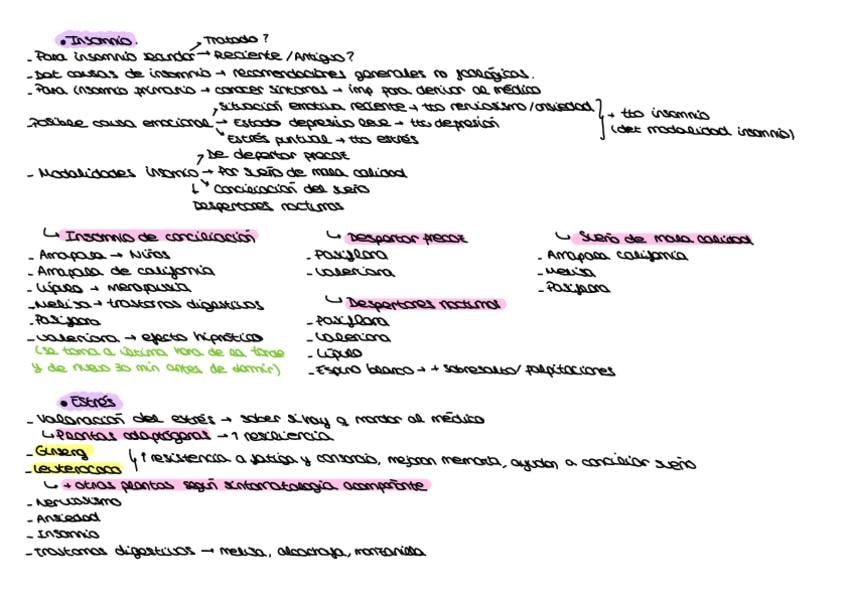 • Insomnio.
Tratado?
- Para insomnio secundar → Reciente / Antiguo?
- Det causas de insomnio → recomendaciones generales no fcológicas.
- Para insomnio primario → conocer síntomas → imp para derivar al médico
Situación emotiva reciente → tto nerviosismo/ansiedad
- Posible causa emocional → Estado depresivo leve → tto depresión
Estrés puntual → tto estrés
+ tto insomnio
(det modalidad insomnio)
De despertar precoz
- Modalidades insomnio → Por sueño de mala calidad
Conciliación del sueño
Despertares nocturnos
↳ Insomnio de conciliación
- Amapola → Niños
- Amapola de california
- Lúpulo → menopausia
- Melisa → trastornos digestivos
- Pasiflora
- Valeriana → efecto hipnótico
(se toma a última hora de la tarde
y de nuevo 30 min antes de dormir)
↳ Despertar precoz
- Pasiflora
- Valeriana
↳ Despertares nocturnos
- Pasiflora
- Valeriana
- Lúpulo
- Espino blanco → + sobresalto/palpitaciones
↳ Sueño de mala calidad
- Amapola california
- Melisa
- Pasiflora
• Estrés
- Valoración del estrés → saber si hay q mandar al médico
↳ Plantas adaptógenas → ↑ resiliencia
- Ginseng
- Eleuterococo
↳ ↑ resistencia a fatiga y cansancio, mejoran memoria, ayudan a conciliar sueño
↳ + otras plantas según sintomatología acompañante
- Nerviosismo
- Ansiedad
- Insomnio
- Trastornos digestivos → melisa, alcachofa, manzanilla